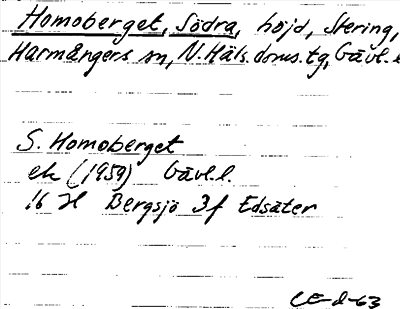 Homoberget, Södra, höjd, Stering,
Harmångers sn, N.Häls. doms.tg, Gävl.l
S. Homoberget
ek (1959) Gävl.l.
16 H Bergsjö 3f Edsäter
CE-d-63